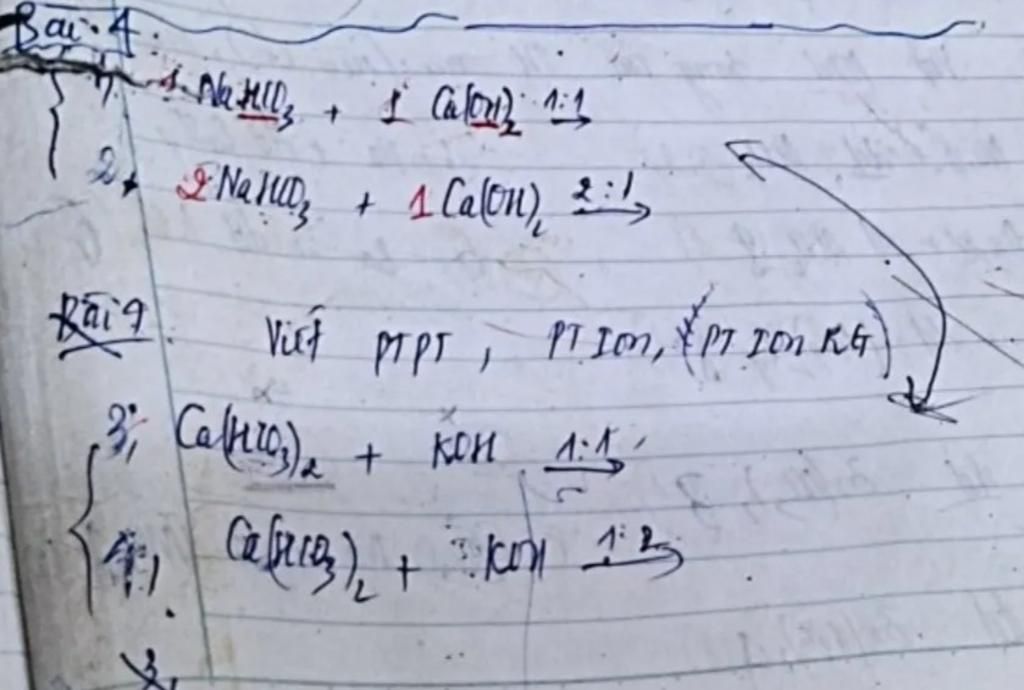 Bài 4
1, 1 NaHCO3 + 1 Ca(OH)2 1:1 →
2, 2 NaHCO3 + 1 Ca(OH)2 2:1 →
Bài 9 Viết PTPT, PT Ion, (PT Ion RG)
3, Ca(HCO3)2 + KOH 1:1 →
4, Ca(HCO3)2 + KOH 1:2 →
3,